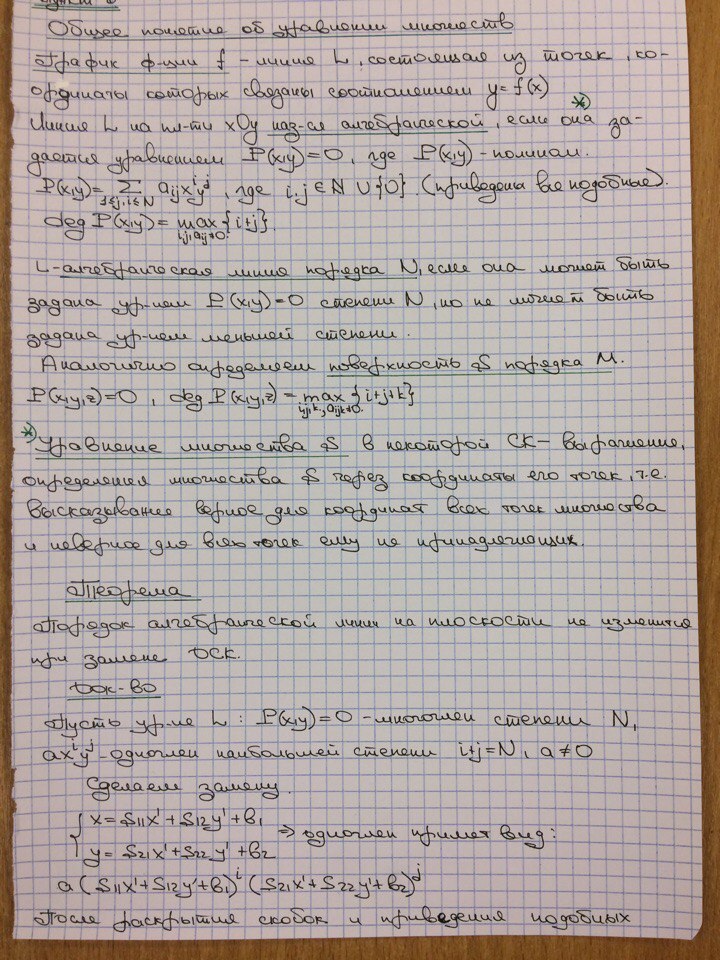 Общее понятие об уравнении множеств
График ф-ции f - линия L, состоящая из точек, ко-
ординаты которых связаны соотношением y=f(x)
Линия L на пл-ти xOy наз-ся алгебраической, если она за-
дается уравнением P(x,y)=0, где P(x,y) - полином.
P(x,y)=∑ aᵢⱼxⁱyʲ, где i,j∈N∪{0}. (приведены все подобные).
deg P(x,y)= max{i+j}.
i,j,aᵢⱼ≠0.
L-алгебраическая линия порядка N, если она может быть
задана ур-нием P(x,y)=0 степени N, но не может быть
задана ур-ием меньшей степени.
Аналогично определяем поверхность S порядка M.
P(x,y,z)=0, deg P(x,y,z)=max{i+j+k}
i,j,k,aᵢⱼₖ≠0.
* Уравнение множества S в некоторой СК- выражение,
определения множества S через координаты его точек, т.е.
высказывание верное для координат всех точек множества
и неверное для всех точек ему не принадлежащих.
Теорема
Порядок алгебраической линии на плоскости не изменится
при замене ДСК.
Док-во
Пусть ур-ие L: P(x,y)=0 - многочлен степени N,
axⁱyʲ-одночлен наибольшей степени i+j=N, a≠0
Сделаем замену.
{x=S₁₁x'+S₁₂y'+b₁
y=S₂₁x'+S₂₂y'+b₂ ⇒ одночлен примет вид:
a(S₁₁x'+S₁₂y'+b₁)ⁱ(S₂₁x'+S₂₂y'+b₂)ʲ
После раскрытия скобок и приведения подобных